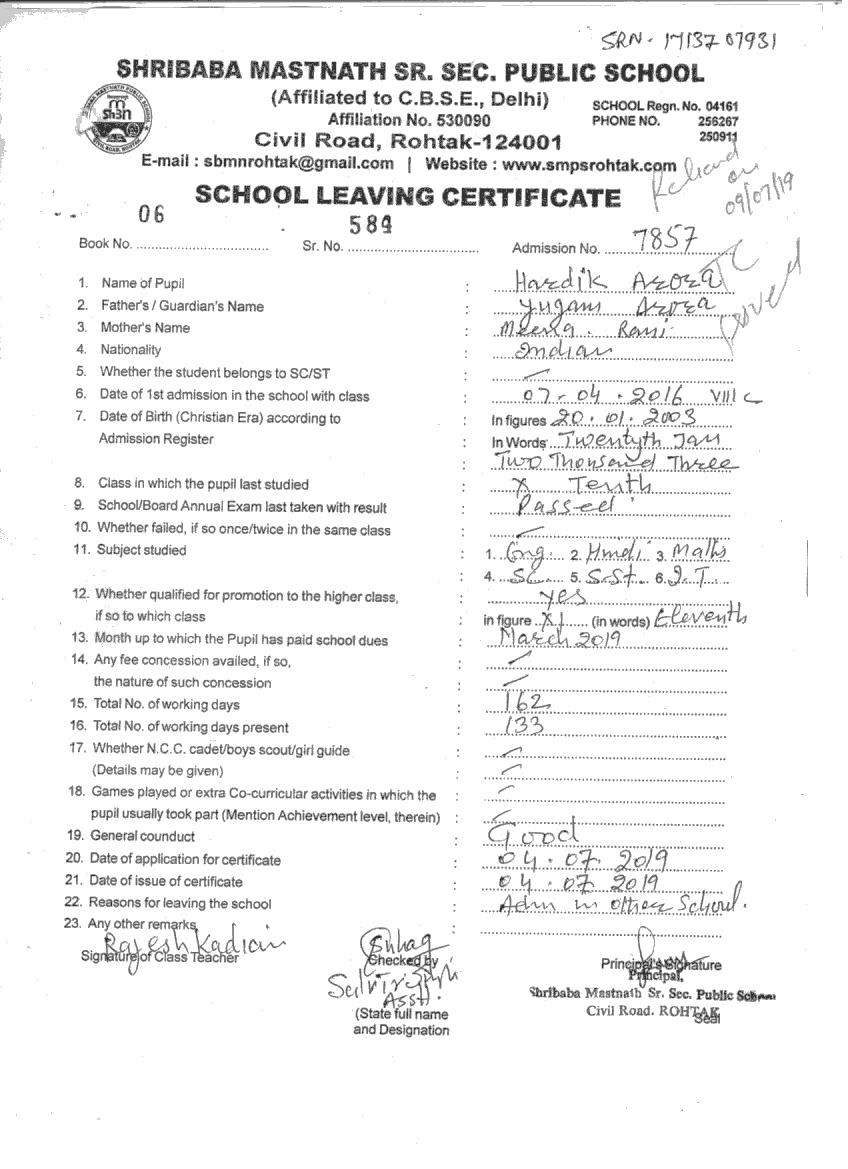 SRN - 1713707931
SHRIBABA MASTNATH SR. SEC. PUBLIC SCHOOL
(Affiliated to C.B.S.E., Delhi)
Affiliation No. 530090
SCHOOL Regn. No. 04161
PHONE NO. 256267
250911
Civil Road, Rohtak-124001
E-mail : sbmnrohtak@gmail.com | Website : www.smpsrohtak.com
SCHOOL LEAVING CERTIFICATE
on
09/07/19
Book No. 06 Sr. No. 584 Admission No. 7857
TC
1. Name of Pupil : Hardik Arora
2. Father's / Guardian's Name : Yugam Arora
3. Mother's Name : Meena Rani
4. Nationality : Indian
5. Whether the student belongs to SC/ST :
6. Date of 1st admission in the school with class : 07-04-2016 VIII C
7. Date of Birth (Christian Era) according to : In figures 20.01.2003
Admission Register : In Words Twentyth Jan
: Two Thousand Three
8. Class in which the pupil last studied : X Tenth
9. School/Board Annual Exam last taken with result : Passed
10. Whether failed, if so once/twice in the same class :
11. Subject studied : 1. Eng. 2. Hindi 3. Maths
: 4. SC 5. S.St. 6. I.T.
12. Whether qualified for promotion to the higher class, : yes
if so to which class : in figure XI (in words) Eleventh
13. Month up to which the Pupil has paid school dues : March 2019
14. Any fee concession availed, if so, :
the nature of such concession :
15. Total No. of working days : 162
16. Total No. of working days present : 133
17. Whether N.C.C. cadet/boys scout/girl guide :
(Details may be given) :
18. Games played or extra Co-curricular activities in which the :
pupil usually took part (Mention Achievement level, therein) :
19. General counduct : Good
20. Date of application for certificate : 04.07.2019
21. Date of issue of certificate : 04.07.2019
22. Reasons for leaving the school : Adm in other School.
23. Any other remarks :
Rajesh Kadian
Signature of Class Teacher
Checked by
Asstt.
(State full name
and Designation
Principal's Signature
Principal,
Shribaba Mastnath Sr. Sec. Public School
Civil Road. ROHTAK
Seal